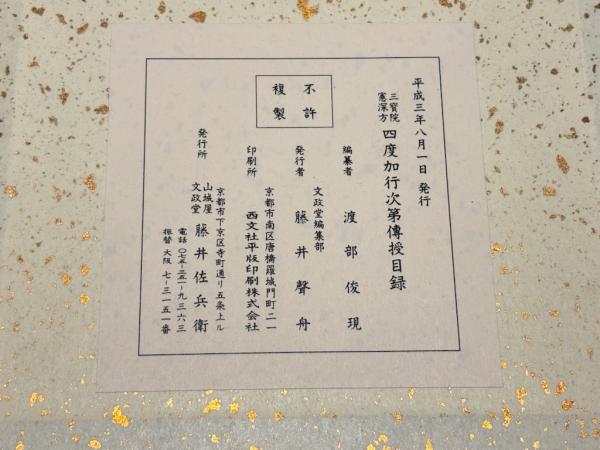 平成三年八月一日 発行
三寶院
憲深方
四度加行次第傳授目録
編纂者 渡部俊現
文政堂編集部
発行者 藤井聲舟
京都市南区唐橋羅城門町二一
印刷所 西文社平版印刷株式会社
京都市下京区寺町通り五条上ル
発行所 山城屋
文政堂
藤井佐兵衛
電話 〇七五-三五一-九三六三
振替 大阪 七-三一五一番
不許
複製